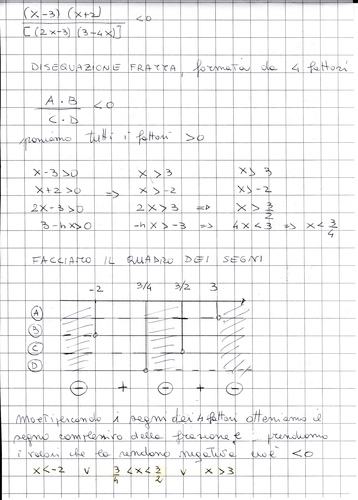 (x-3) (x+2)
[(2x-3) (3-4x)] <0
DISEQUAZIONE FRATTA, formata da 4 fattori
A · B
C · D <0
poniamo tutti i fattori >0
x-3>0 x>3 x>3
x+2>0 => x>-2 x>-2
2x-3>0 2x>3 => x> 3/2
3-4x>0 -4x>-3 => 4x<3 => x< 3/4
FACCIAMO IL QUADRO DEI SEGNI
-2 3/4 3/2 3
A
B
C
D
- + - + -
moltiplicando i segni dei 4 fattori otteniamo il
segno complessivo della frazione e prendiamo
i valori che la rendono negativa cioè <0
x<-2 v 3/4 <x< 3/2 v x>3